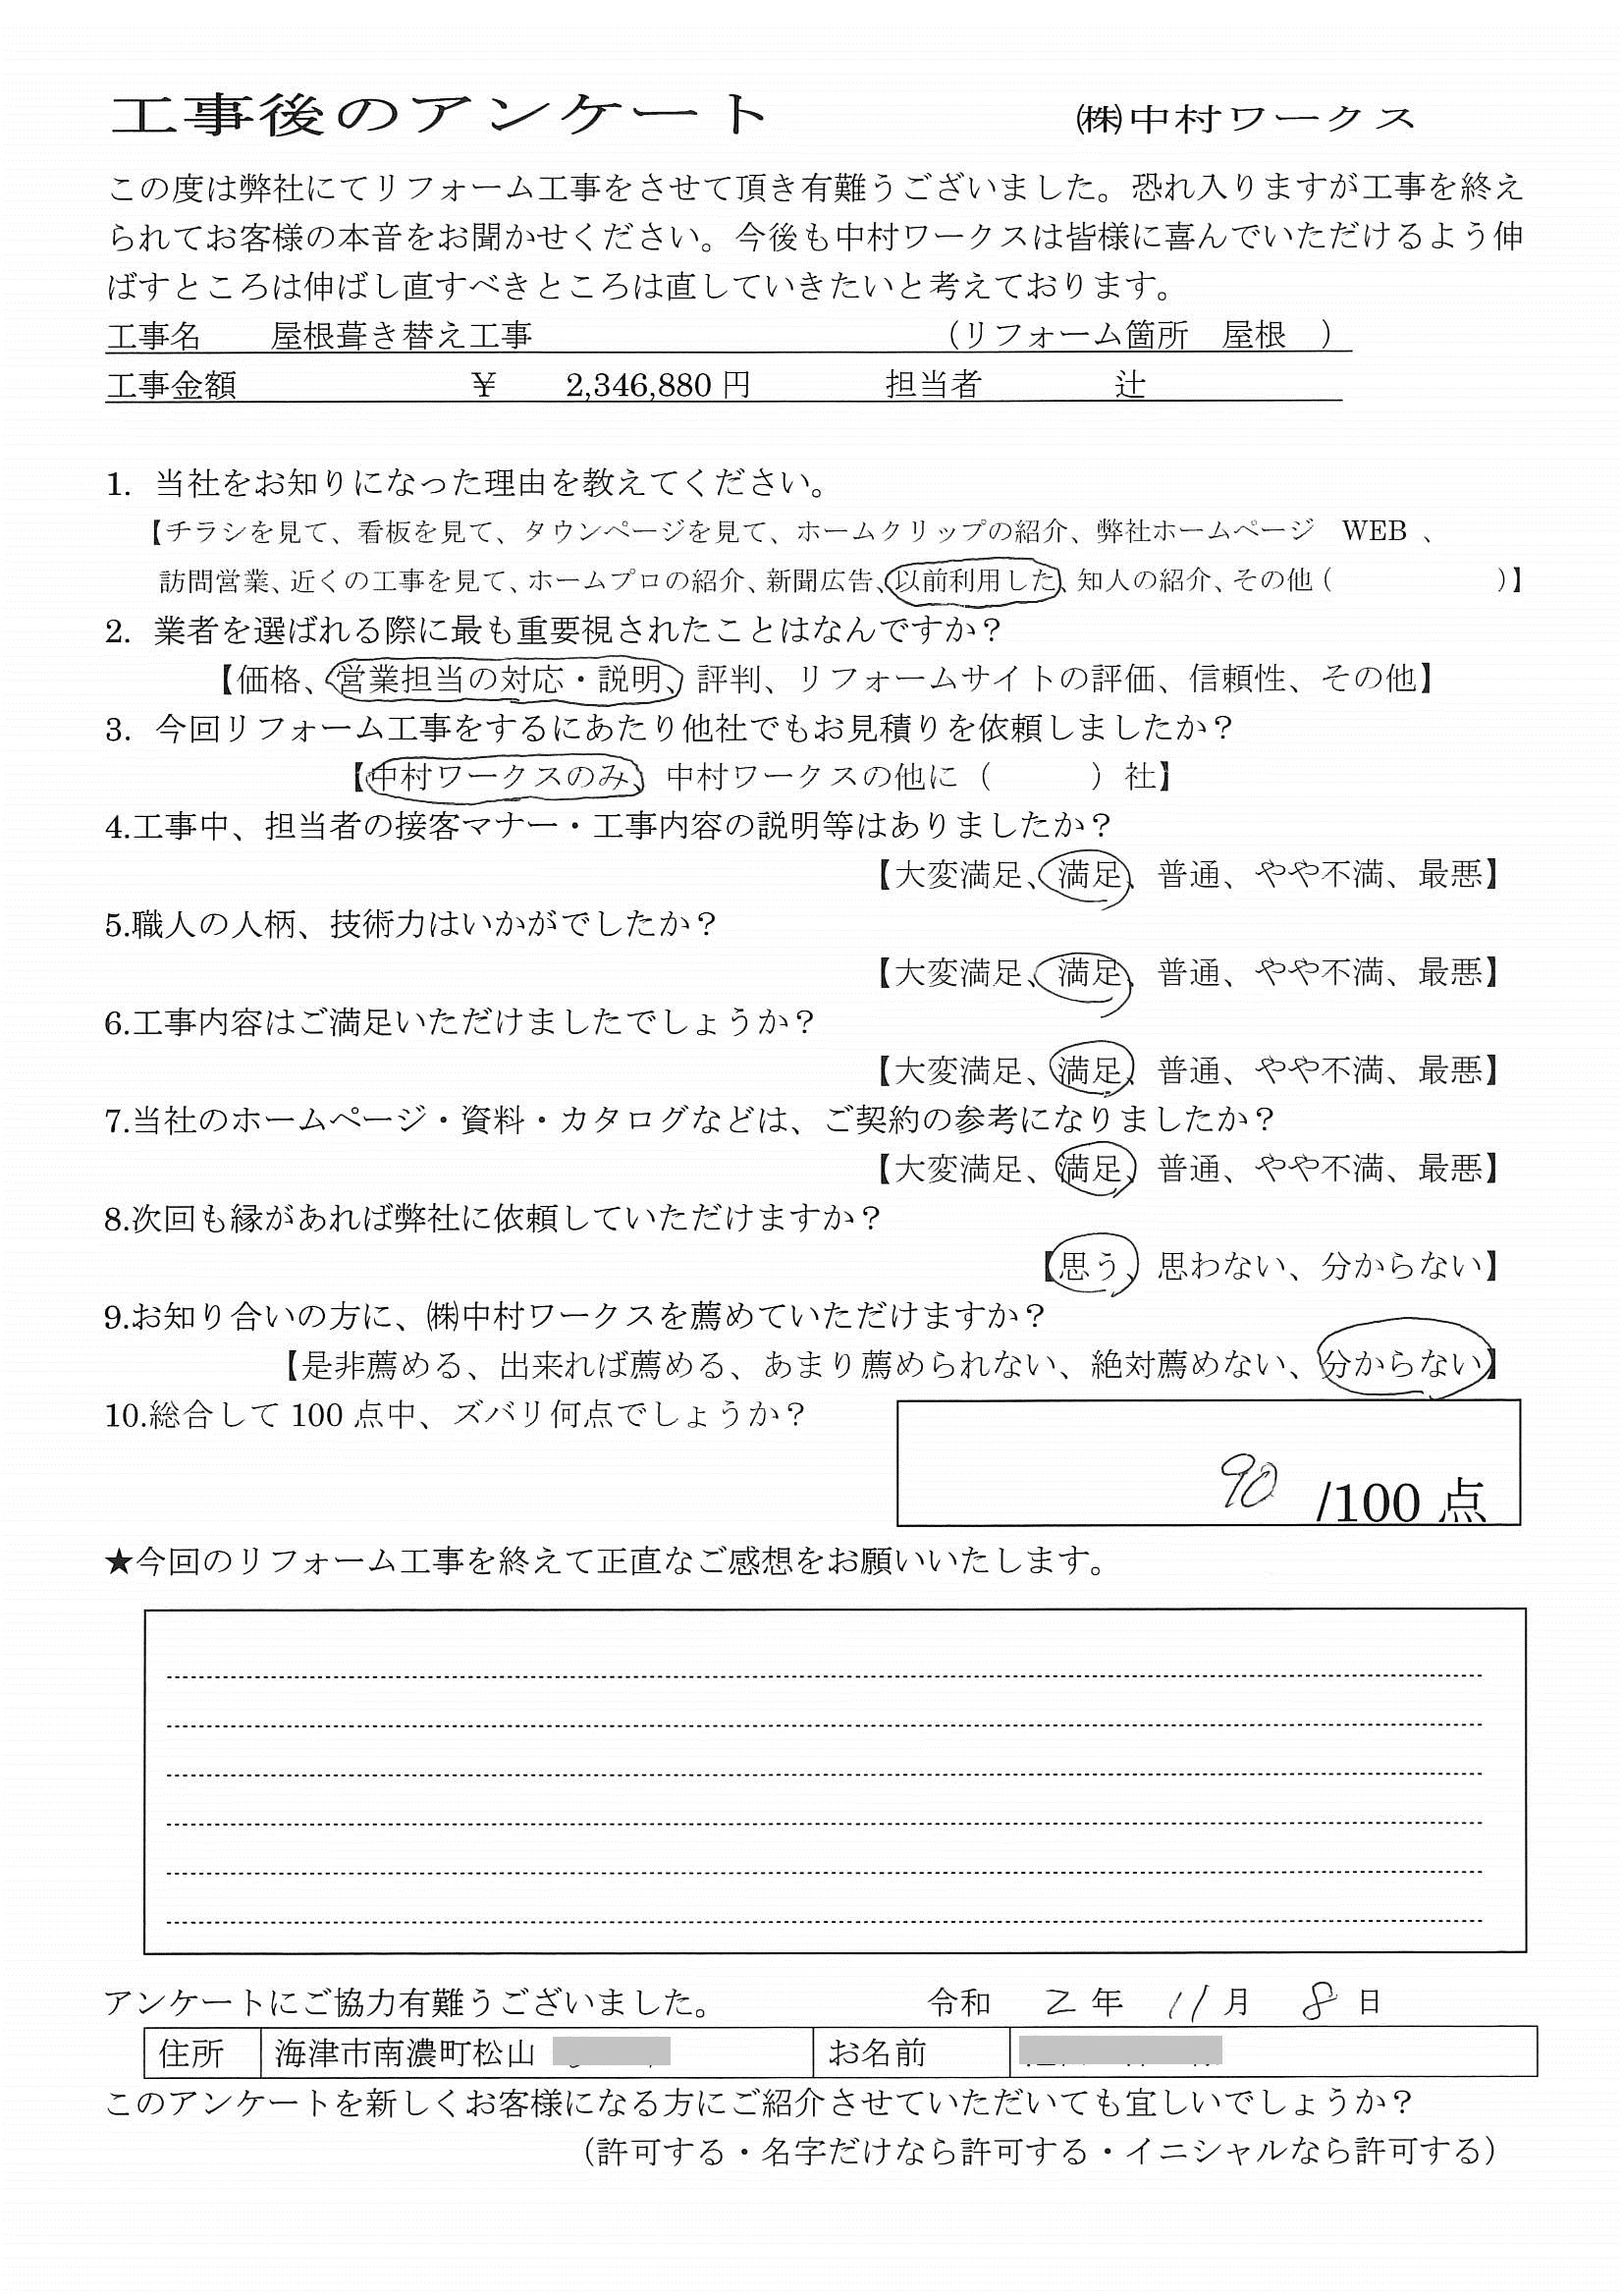 工事後のアンケート ㈱中村ワークス
この度は弊社にてリフォーム工事をさせて頂き有難うございました。恐れ入りますが工事を終え
られてお客様の本音をお聞かせください。今後も中村ワークスは皆様に喜んでいただけるよう伸
ばすところは伸ばし直すべきところは直していきたいと考えております。
工事名 屋根葺き替え工事 (リフォーム箇所 屋根 )
工事金額 ¥ 2,346,880 円 担当者 辻
1. 当社をお知りになった理由を教えてください。
【チラシを見て、看板を見て、タウンページを見て、ホームクリップの紹介、弊社ホームページ WEB 、
訪問営業、近くの工事を見て、ホームプロの紹介、新聞広告、以前利用した、知人の紹介、その他 ( )】
2. 業者を選ばれる際に最も重要視されたことはなんですか?
【価格、営業担当の対応・説明、評判、リフォームサイトの評価、信頼性、その他】
3. 今回リフォーム工事をするにあたり他社でもお見積りを依頼しましたか?
【中村ワークスのみ、中村ワークスの他に ( ) 社】
4.工事中、担当者の接客マナー・工事内容の説明等はありましたか?
【大変満足、満足、普通、やや不満、最悪】
5.職人の人柄、技術力はいかがでしたか?
【大変満足、満足、普通、やや不満、最悪】
6.工事内容はご満足いただけましたでしょうか?
【大変満足、満足、普通、やや不満、最悪】
7.当社のホームページ・資料・カタログなどは、ご契約の参考になりましたか?
【大変満足、満足、普通、やや不満、最悪】
8.次回も縁があれば弊社に依頼していただけますか?
【思う、思わない、分からない】
9.お知り合いの方に、㈱中村ワークスを薦めていただけますか?
【是非薦める、出来れば薦める、あまり薦められない、絶対薦めない、分からない】
10.総合して 100 点中、ズバリ何点でしょうか?
90 /100 点
★今回のリフォーム工事を終えて正直なご感想をお願いいたします。
アンケートにご協力有難うございました。 令和 2 年 11 月 8 日
住所 海津市南濃町松山 お名前
このアンケートを新しくお客様になる方にご紹介させていただいても宜しいでしょうか?
(許可する・名字だけなら許可する・イニシャルなら許可する)